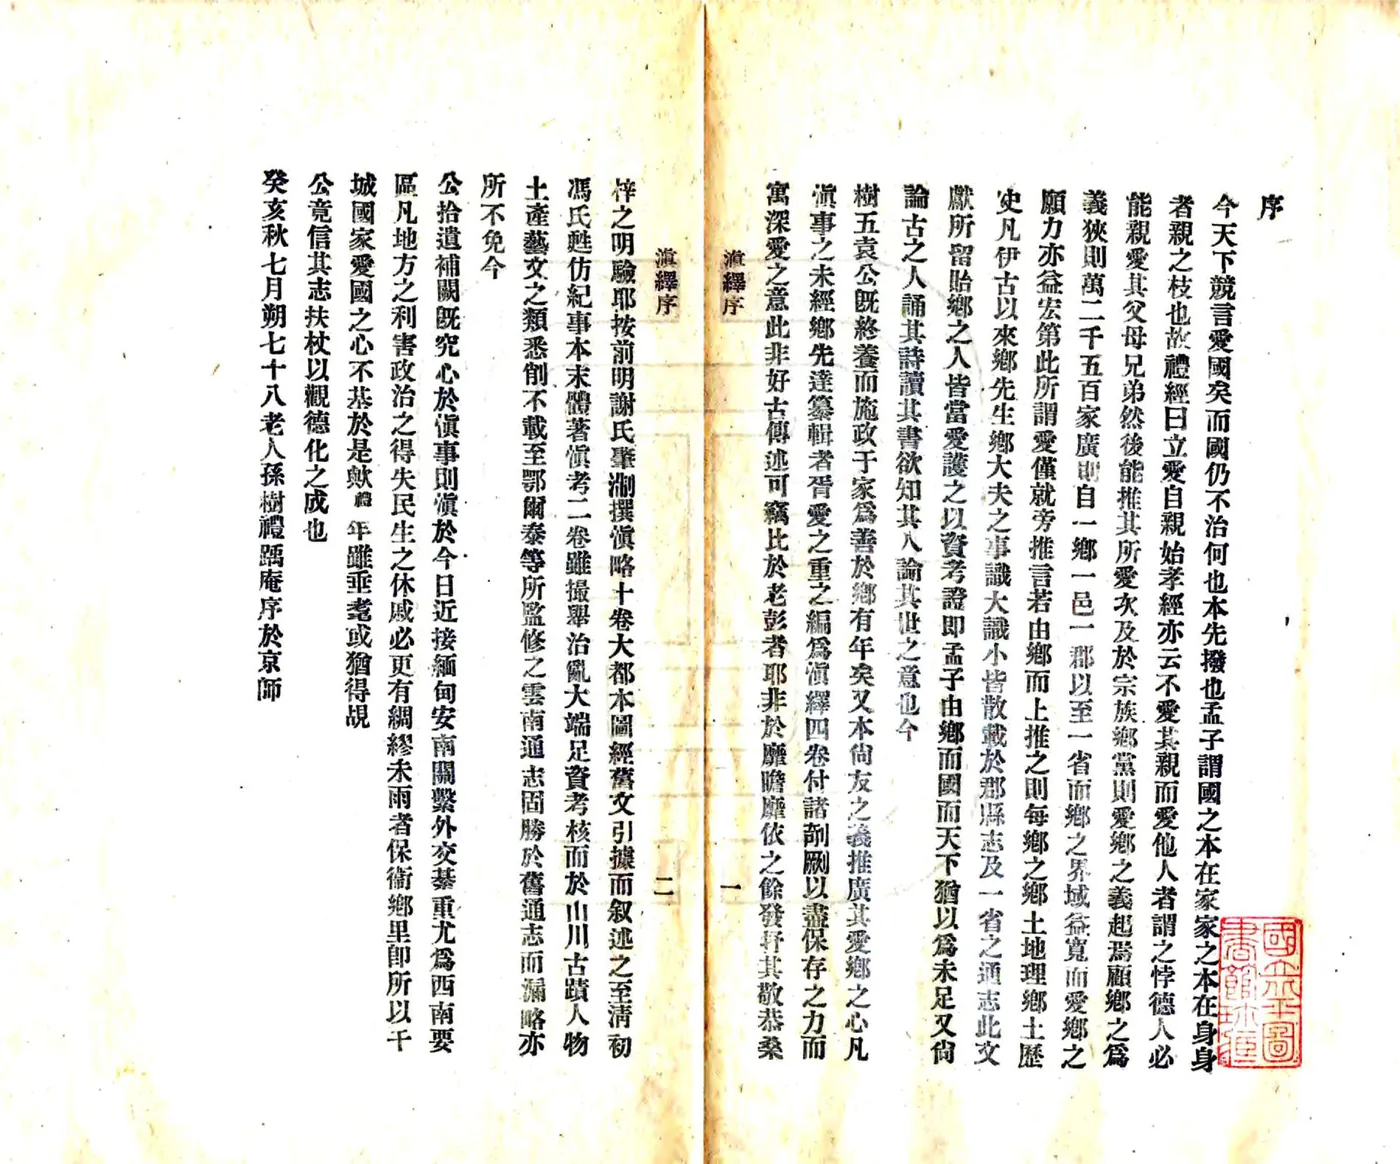 序
今天下競言愛國矣而國仍不治何也本先撥也孟子謂國之本在家家之本在身身
者親之枝也故禮經曰立愛自親始孝經亦云不愛其親而愛他人者謂之悖德人必
能親愛其父母兄弟然後能推其所愛次及於宗族鄉黨則愛鄉之義起焉顧鄉之爲
義狹則萬二千五百家廣則自一鄉一邑一郡以至一省而鄉之界域益寬而愛鄉之
願力亦益宏第此所謂愛僅就旁推言若由鄉而上推之則每鄉之鄉土地理鄉土歷
史凡伊古以來鄉先生鄉大夫之事識大識小皆散載於郡縣志及一省之通志此文
獻所留貽鄉之人皆當愛護之以資考證即孟子由鄉而國而天下猶以爲未足又尙
論古之人誦其詩讀其書欲知其人論其世之意也今
樹五袁公旣終養而施政于家爲善於鄉有年矣又本尙友之義推廣其愛鄉之心凡
滇事之未經鄉先達纂輯者胥愛之重之編爲滇繹四卷付諸剞劂以盡保存之力而
寓深愛之意此非好古傳述可竊比於老彭者耶非於靡瞻靡依之餘發抒其敬恭桑
滇繹序
一
滇繹序
二
梓之明驗耶按前明謝氏肇淛撰滇略十卷大都本圖經舊文引據而叙述之至淸初
馮氏甦仿紀事本末體著滇考二卷雖撮舉治亂大端足資考核而於山川古蹟人物
土產藝文之類悉削不載至鄂爾泰等所監修之雲南通志固勝於舊通志而漏略亦
所不免今
公拾遺補闕旣究心於滇事則滇於今日近接緬甸安南關繫外交綦重尤爲西南要
區凡地方之利害政治之得失民生之休戚必更有綢繆未雨者保衞鄉里卽所以干
城國家愛國之心不基於是歟禮年雖垂耄或猶得覘
公竟信其志扶杖以觀德化之成也
癸亥秋七月朔七十八老人孫樹禮踽庵序於京師
國立北平圖
書館珍藏